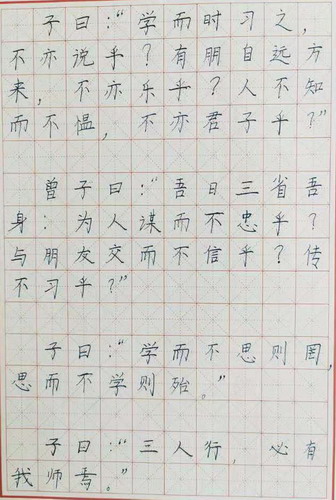 子曰：“学而时习之，
不亦说乎？有朋自远方
来，不亦乐乎？人不知
而不愠，不亦君子乎？”
曾子曰：“吾日三省吾
身：为人谋而不忠乎？
与朋友交而不信乎？传
不习乎？”
子曰：“学而不思则罔，
思而不学则殆。”
子曰：“三人行，必有
我师焉。”